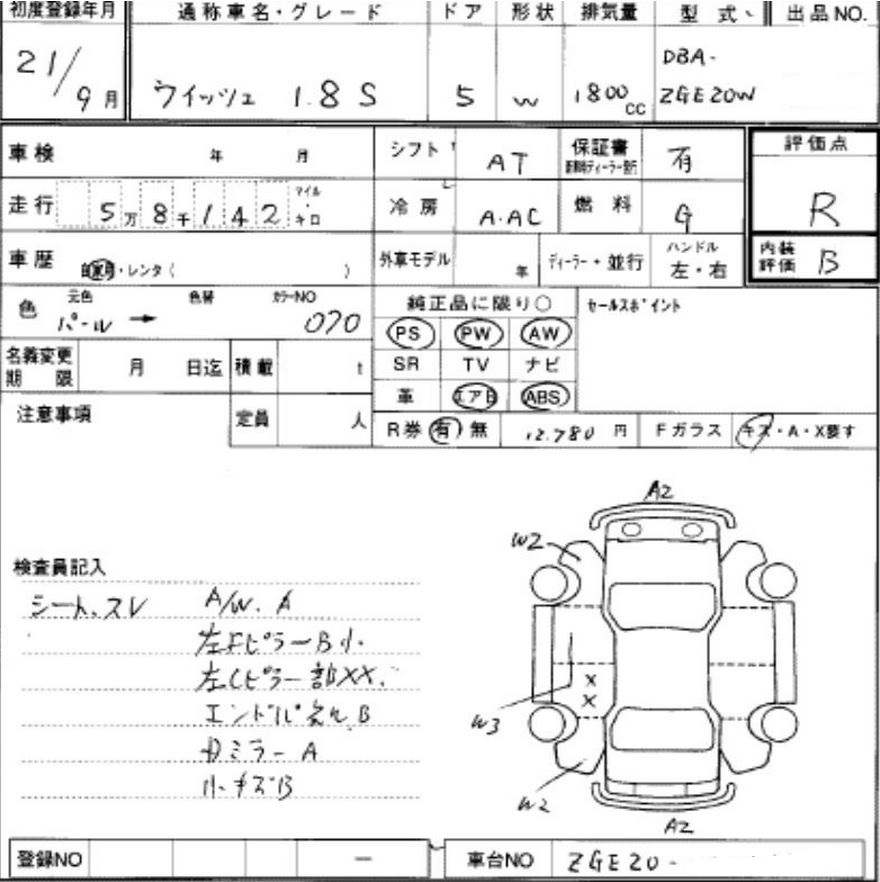 初度登録年月 通称車名・グレード ドア 形状 排気量 型式、 出品NO.
21/9月 ウイッシュ 1.8 S 5 W 1800cc DBA-
ZGE20W
車検 年 月 シフト AT 保証書 有 評価点
走行 5万8千142 マイル・キロ 冷房 A・AC 燃料 G R
車歴 自家用・レンタ( ) 外車モデル 年 ディーラー・並行 ハンドル 左・右 内装評価 B
色 元色 パール → 色替 カラーNO 070 純正品に限り○ セールスポイント
PS PW AW
名義変更期限 月 日迄 積載 t SR TV ナビ
革 エアB ABS
注意事項 定員 人 R券 有・無 12,780円 Fガラス キズ・A・X要す
A2
W2
検査員記入
シート、スレ A/W. A
左Fピラー B小.
左Cピラー部XX.
X
X
W3
B
ミラー A
小キズB
W2
A2
登録NO ー 車台NO ZGE20-